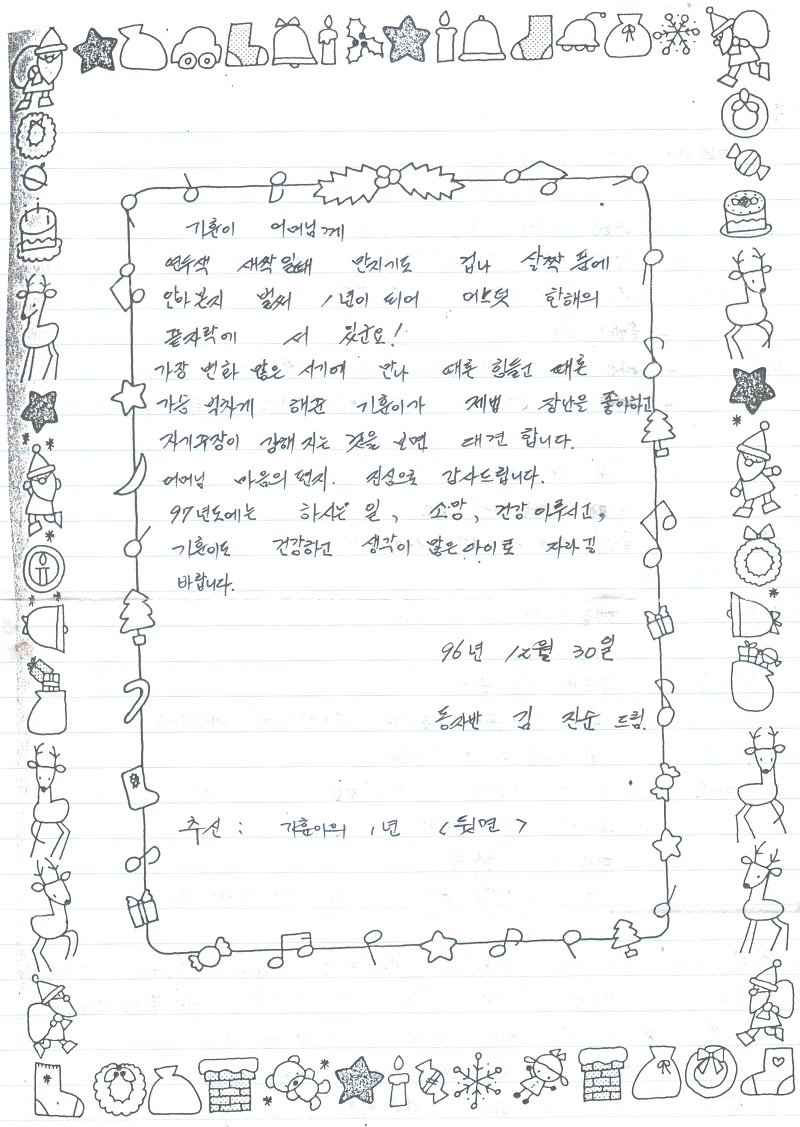 기훈이 어머님께
연두색 새싹일때 만지기도 겁나 살짝 품에
안아본지 벌써 1년이 되어 어느덧 한해의
끝자락에 서 있군요!
가장 변화 많은 시기에 만나 때론 힘들고 때론
가슴 벅차게 해준 기훈이가 제법 장난을 좋아하고
자기주장이 강해 지는 것을 보면 대견 합니다.
어머님 마음의 편지. 진심으로 감사드립니다.
97년도에는 하시는 일, 소망, 건강 이루시고,
기훈이도 건강하고 생각이 많은 아이로 자라길
바랍니다.
96년 12월 30일
동자반 김 진순 드림.
추신 : 기훈이의 1년 <뒷면>